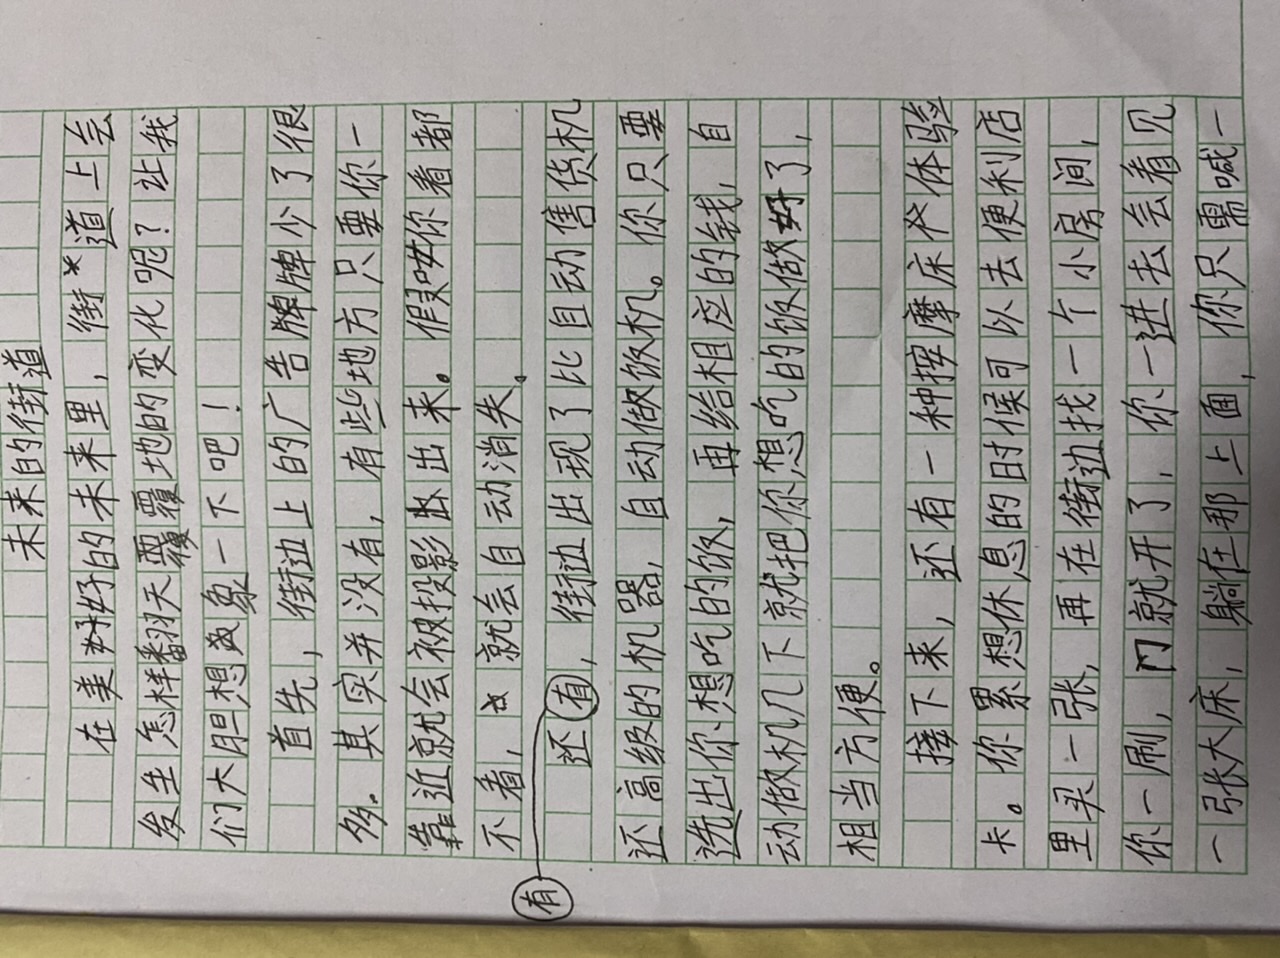 未来的街道
在美好的未来里，街道上会
发生怎样翻天覆地的变化呢？让我
们大胆想象一下吧！
首先，街边上的广告牌少了很
多。其实并没有，有些地方只要你一
靠近就会被投影出来。假如你看都
不看，就会自动消失。
还有，街边出现了比自动售货机
有
还高级的机器，自动做饭机。你只要
选出你想吃的饭，再给相应的钱，自
动做机几下就把你想吃的饭做好了，
相当方便。
接下来，还有一种按摩床体验
卡。你累想休息的时候可以去便利店
里买一张，再在街边找一个小房间，
你一刷，门就开了，你一进去会看见
一张大床，躺在那上面，你只需喊一